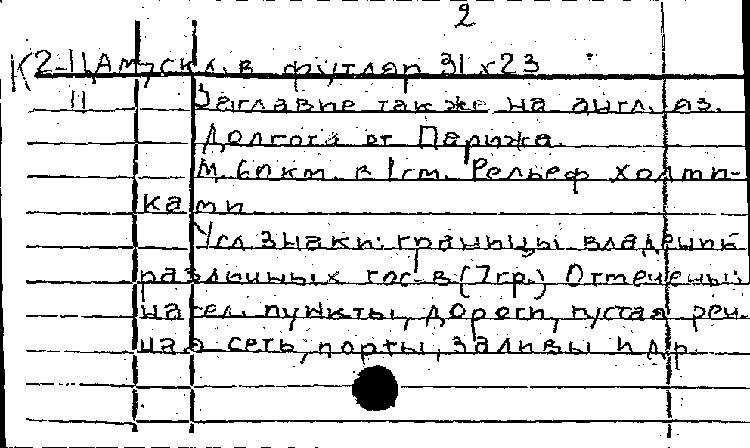 2
К2-11 Ам, скл. в футляр 31 х 23
11 Заглавие также на англ. яз.
Долгота от Парижа.
М. 60 км. в 1 см. Рельеф холми-
ками
Усл. знаки: границы владений
различных гос-в (7 гр.) Отмечены:
насел. пункты, дороги, густая реч-
ная сеть, порты, заливы и др.